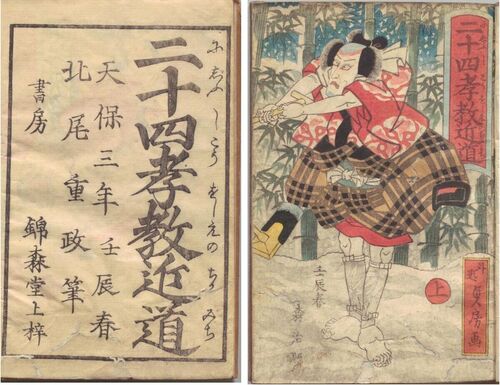 二十四孝教近道
にじふしこうをしえのちかみち
天保三年壬辰春
北尾重政筆
書房
錦森堂上梓
二十四孝教近道
上
貞房画
壬辰春